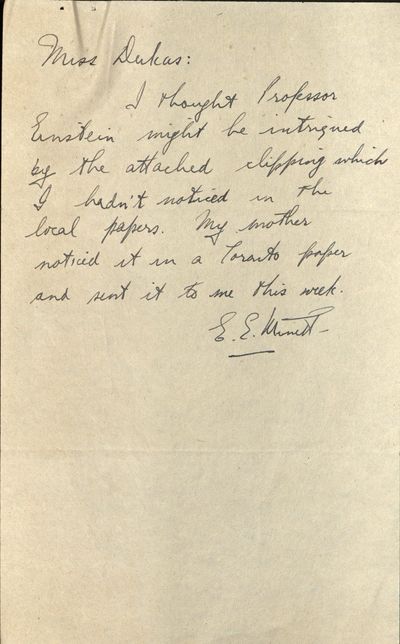 Miss Dukas:
I thought Professor
Einstein might be intrigued
by the attached clipping which
I hadn't noticed in the
local papers. My mother
noticed it in a Toronto paper
and sent it to me this week.
E. E. Minett